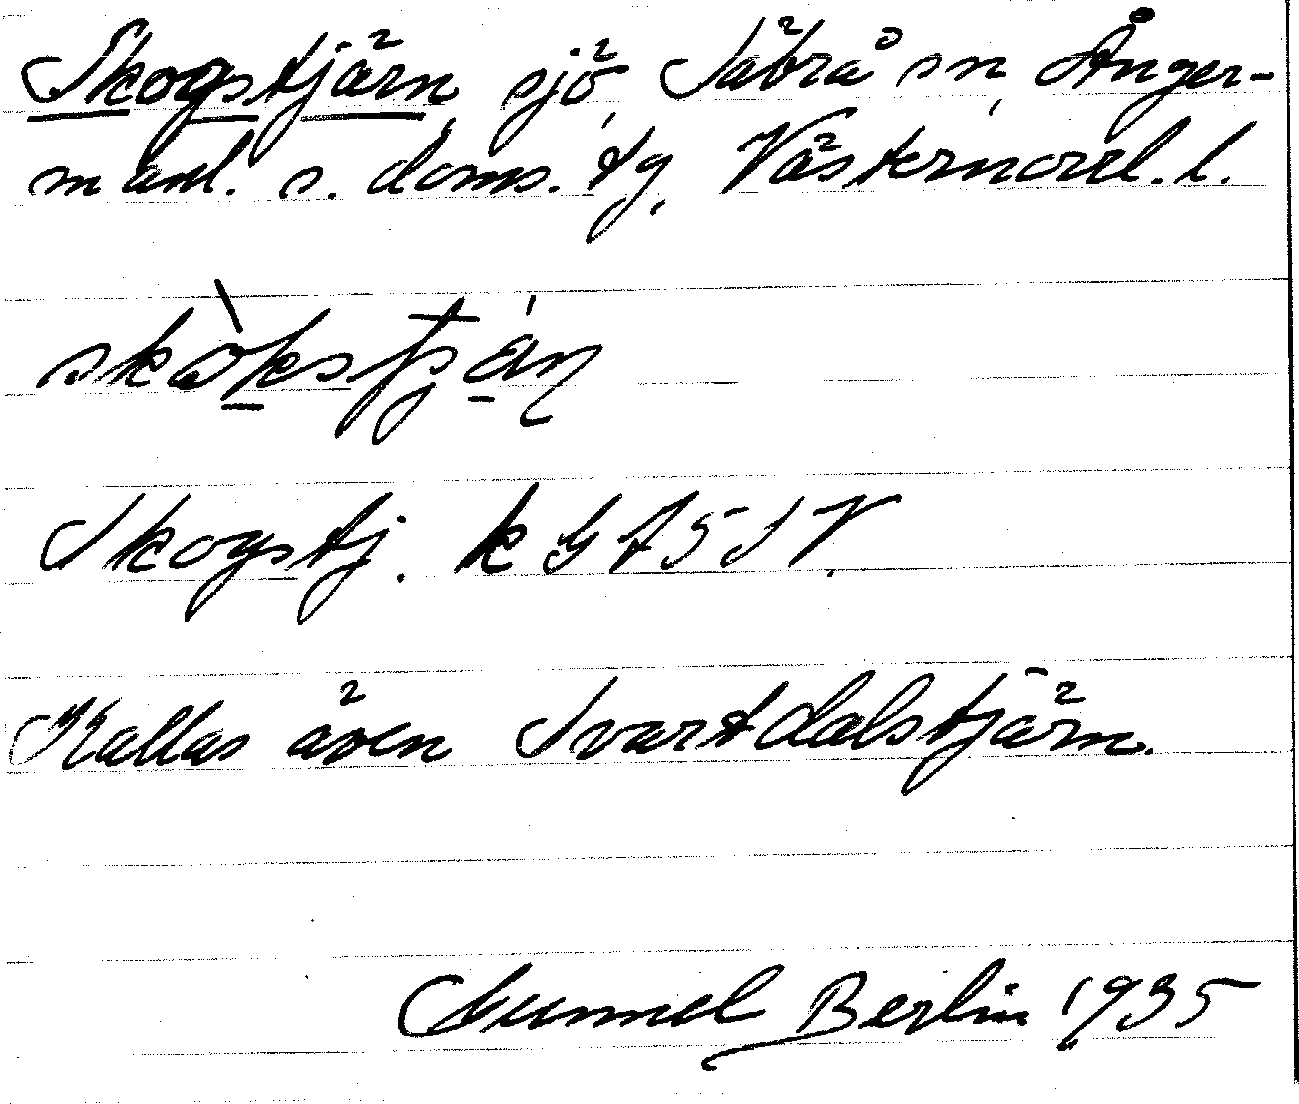 Skogstjärn, sjö, Säbrå sn, Ånger-
manl. s. doms. tg, Västernorrl. l.
Skogstj. k
Kallas även Svartdalstjärn.
Gunnel Berlin 1935